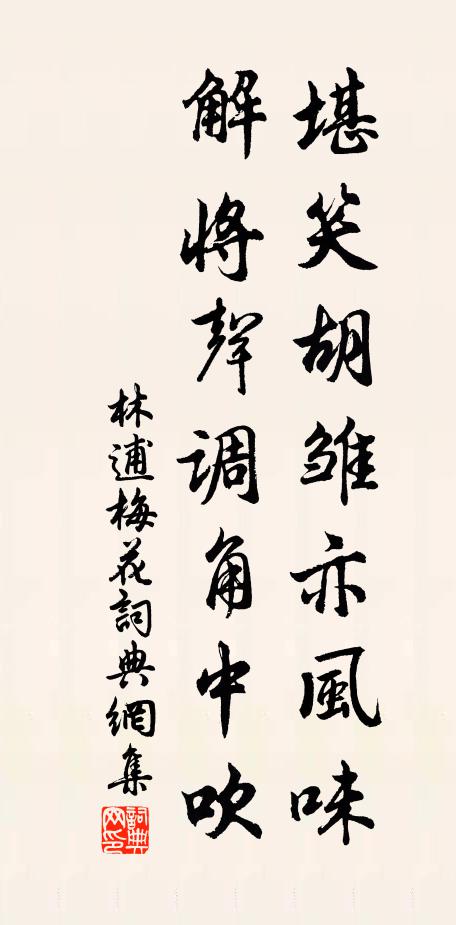 堪笑胡雛亦風味
解將聲調角中吹
林逋梅花詞典網集
詞典网印